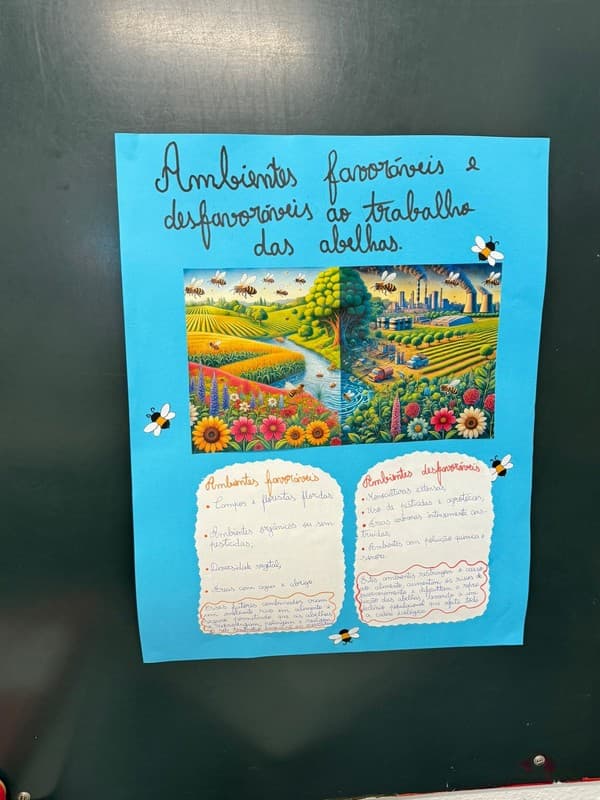 Ambientes favoráveis e
desfavoráveis ao trabalho
das abelhas.
Ambientes favoráveis
• Campos e florestas floridas
• Ambientes orgânicos ou sem
pesticidas;
• Diversidade vegetal;
• Áreas com água e abrigo
Esses fatores combinados criam
um ambiente rico em alimento e
seguro permitindo que as abelhas
se reproduzam, polinizem e
Ambientes desfavoráveis
• Monoculturas extensas;
• Uso de pesticidas e agrotóxicos;
• Áreas urbanas intensamente cons-
truídas;
• Ambientes com poluição química e
sonora.
Estes ambientes restringem o acesso
ao alimento, aumentam os riscos de
envenenamento e dificultam a repro-
dução das abelhas, levando a um
declínio populacional que afeta toda
a cadeia ecológica.